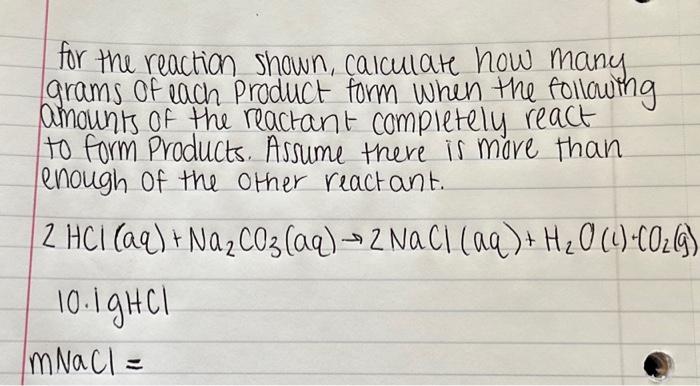 for the reaction shown, calculate how many
grams of each product form when the following
amounts of the reactant completely react
to form Products. Assume there is more than
enough of the other reactant.
2 HCl (aq) + Na₂CO₃(aq) → 2 NaCl (aq) + H₂O(l) + CO₂(g)
10.1gHCl
mNaCl =